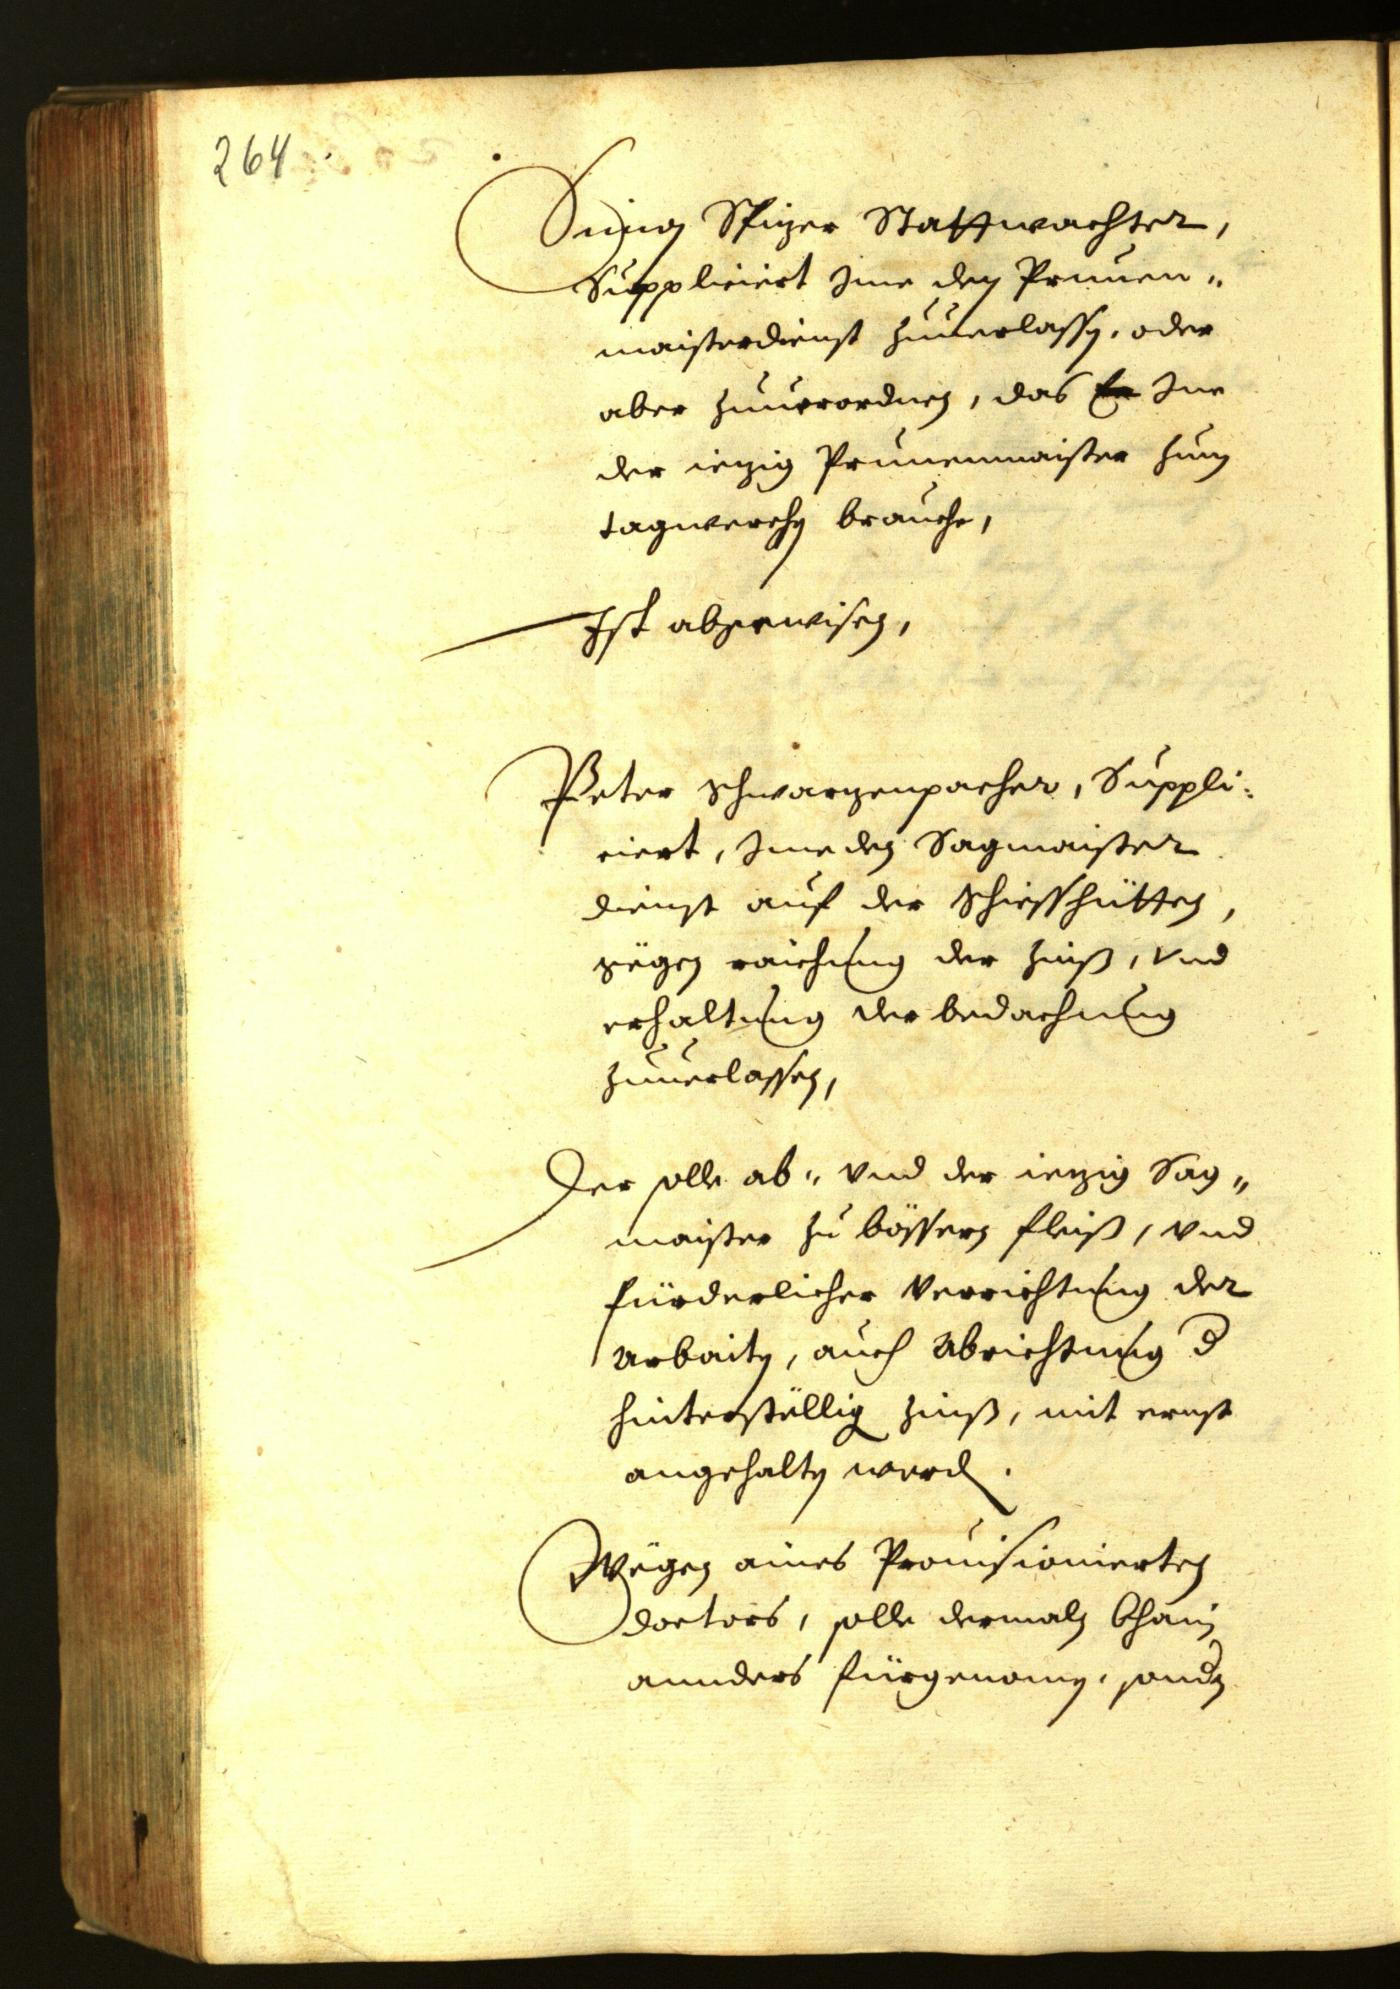 264
Simon Spizer Stattwachter,
Suppliciert Ime den Prunen-
maisterdienst zuuerlassen, oder
aber zuuerordnen, das Er Ine
der iezig Prunenmaister zum
tagwerchen brauche,
Ist abgewisen,
Peter Schwarzenpacher, Suppli-
ciert, Ime den Sagmaister
dienst auf der Schiesshütten,
gegen raichung der zinß, vnd
erhaltung der bedachung
zuuerlassen,
Der solle ab- vnd der iezig Sag-
maister zu bössern fleiß, vnd
fürderlicher Verrichtung der
Arbaiten, auch Abrichtung d
hinterstellig zinß, mit ernst
angehalten werd.
Wegen aines Prouisionierten
doctors, solle dermaln khain
annders fürgenomen, sondern